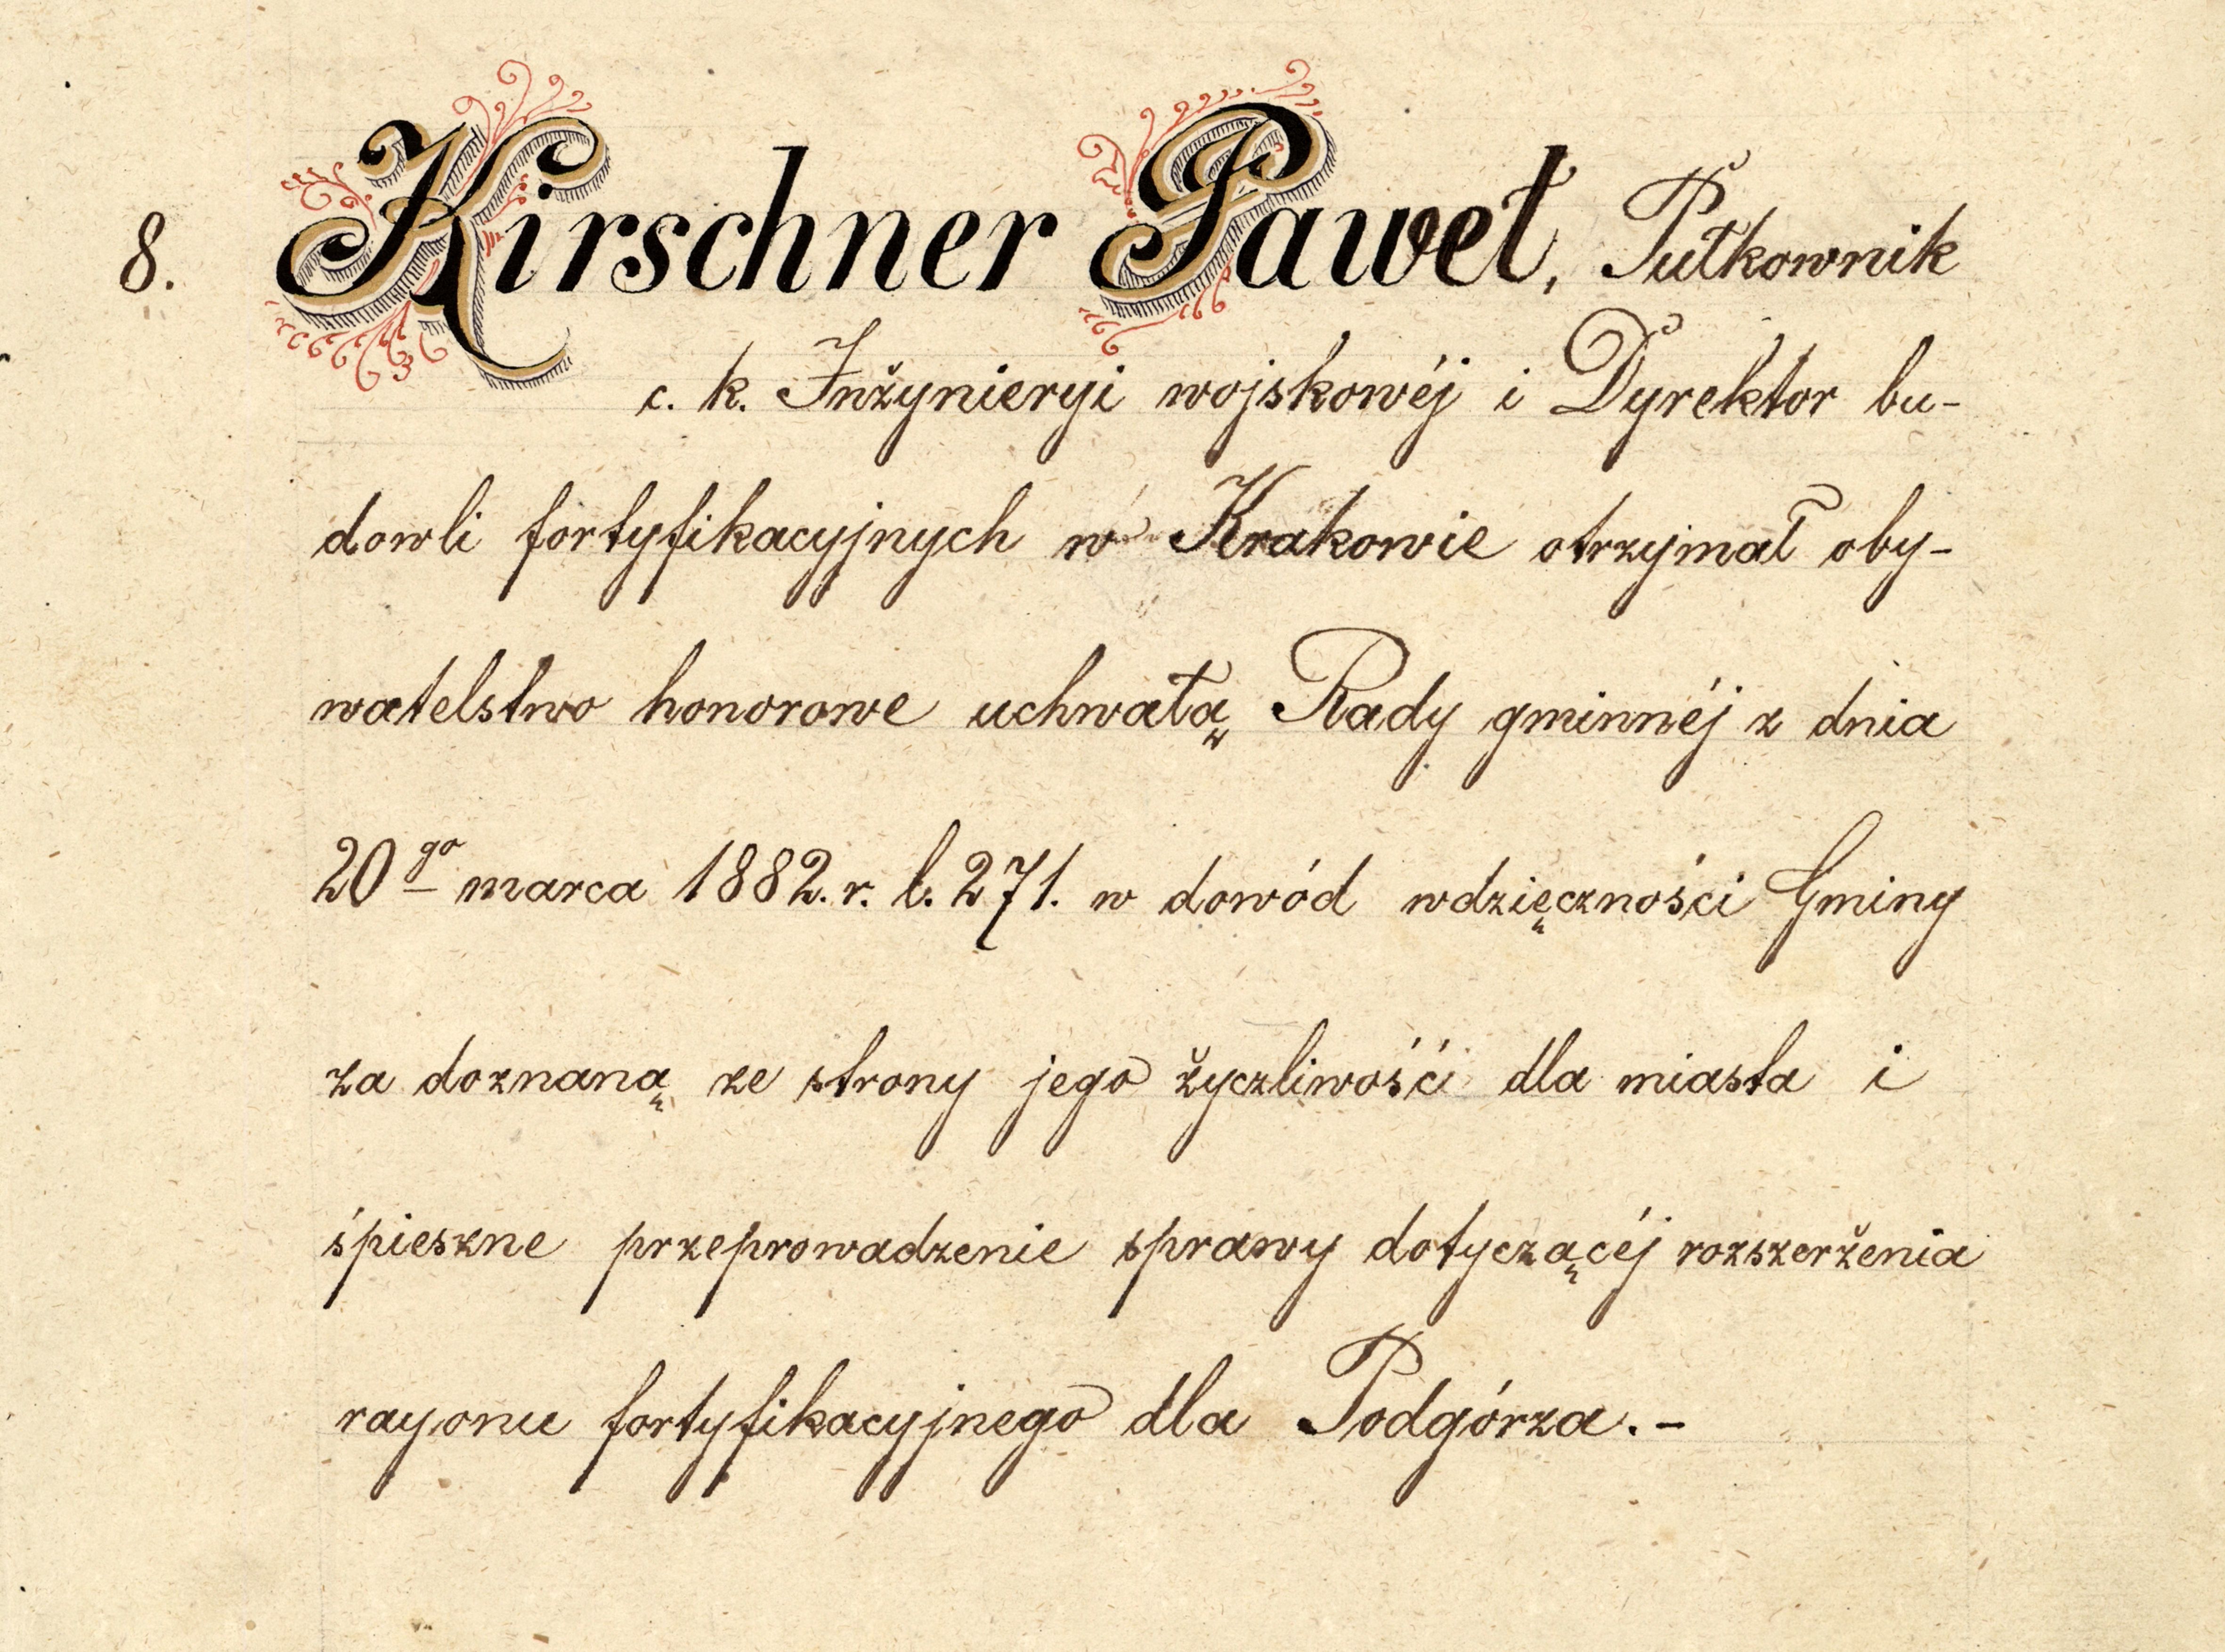 8. Kirschner Paweł, Pułkownik
c. k. Inżynieryi wojskowéj i Dyrektor bu-
dowli fortyfikacyjnych w Krakowie otrzymał oby-
watelstwo honorowe uchwałą Rady gminnéj z dnia
20go marca 1882. r. l. 271. w dowód wdzięczności Gminy
za doznaną ze strony jego życzliwość dla miasta i
śpieszne przeprowadzenie sprawy dotyczącéj rozszerżenia
rayonu fortyfikacyjnego dla Podgórza.-